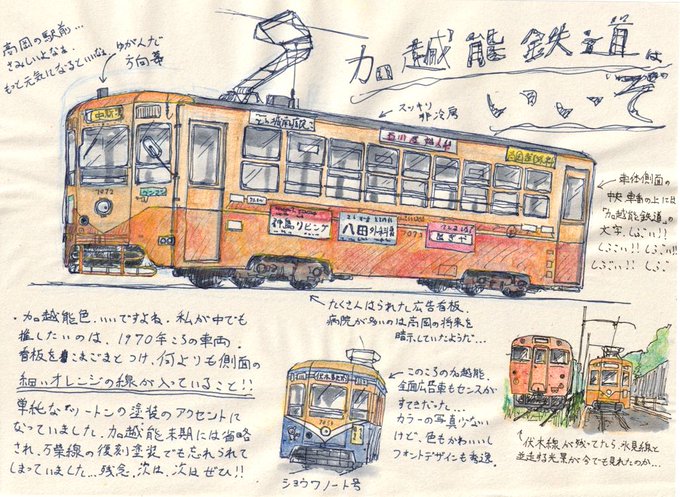 高岡の駅前…
さみしいよなぁ
もっと元気になるといいなぁ
ゆがんだ
方向幕
加越能鉄道は
しぶい
スッキリ
非冷房
車体側面の
中央、車番の上には
"加越能鉄道"の
大字、しぶい!!
しぶい!! しぶい!!
しぶい!! しぶ
7072
ワンマン
神島リビング
八田
外科
7073
たくさんはられた広告看板。
病院が多いのは高岡の将来を
暗示していたようだ…
・加越能色、いいですよね。私が中でも
推したいのは、1970年ころの車両。
看板をこまごまとつけ、何よりも側面の
細いオレンジの線が入っていること!!
単純なツートンの塗装のアクセントに
なっていました。加越能末期には省略
され、万葉線の復刻塗装でも忘れられて
しまっていました…残念。次は、次はぜひ!!
ショウワノート号
このころの加越能、
全面広告車もセンスが
すてきだった…
カラーの写真少ない
けど、色もかわいいし
フォントデザインも秀逸。
伏木線が残ってたら、氷見線と
並走する光景が今でも見れたのか…